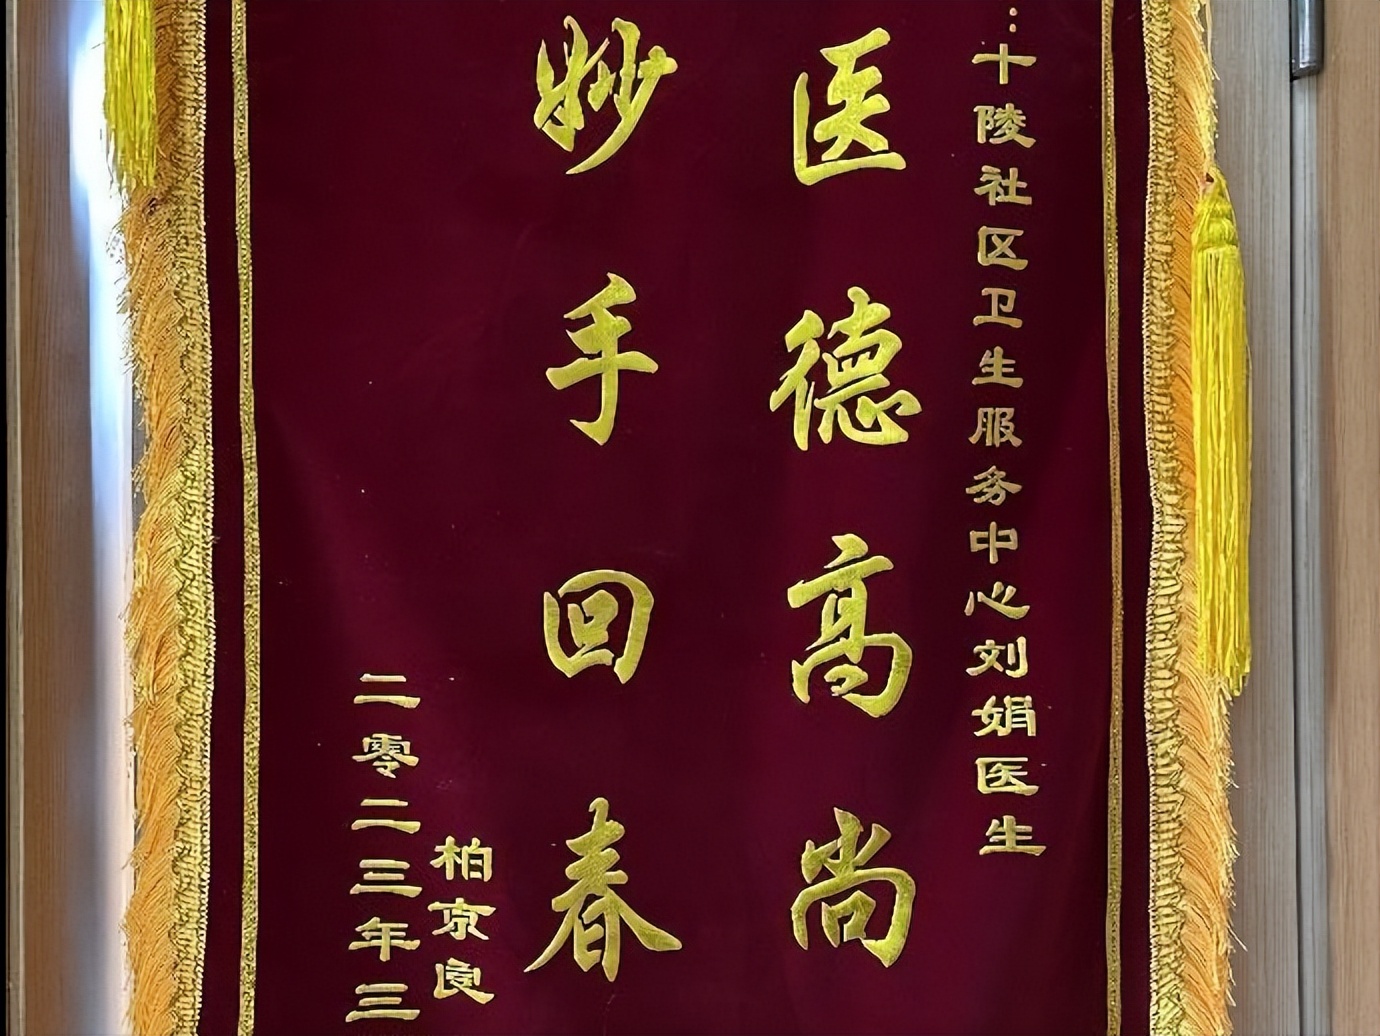 ：十陵社区卫生服务中心刘娟医生
医德高尚
妙手回春
柏京良
二零二三年三